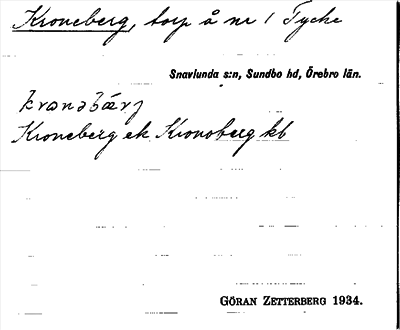 Kroneberg, torp å nr 1 Tycke
Snavlunda s:n, Sundbo hd, Örebro län.
Kroneberg ek Kronoberg kb
GÖRAN ZETTERBERG 1934.